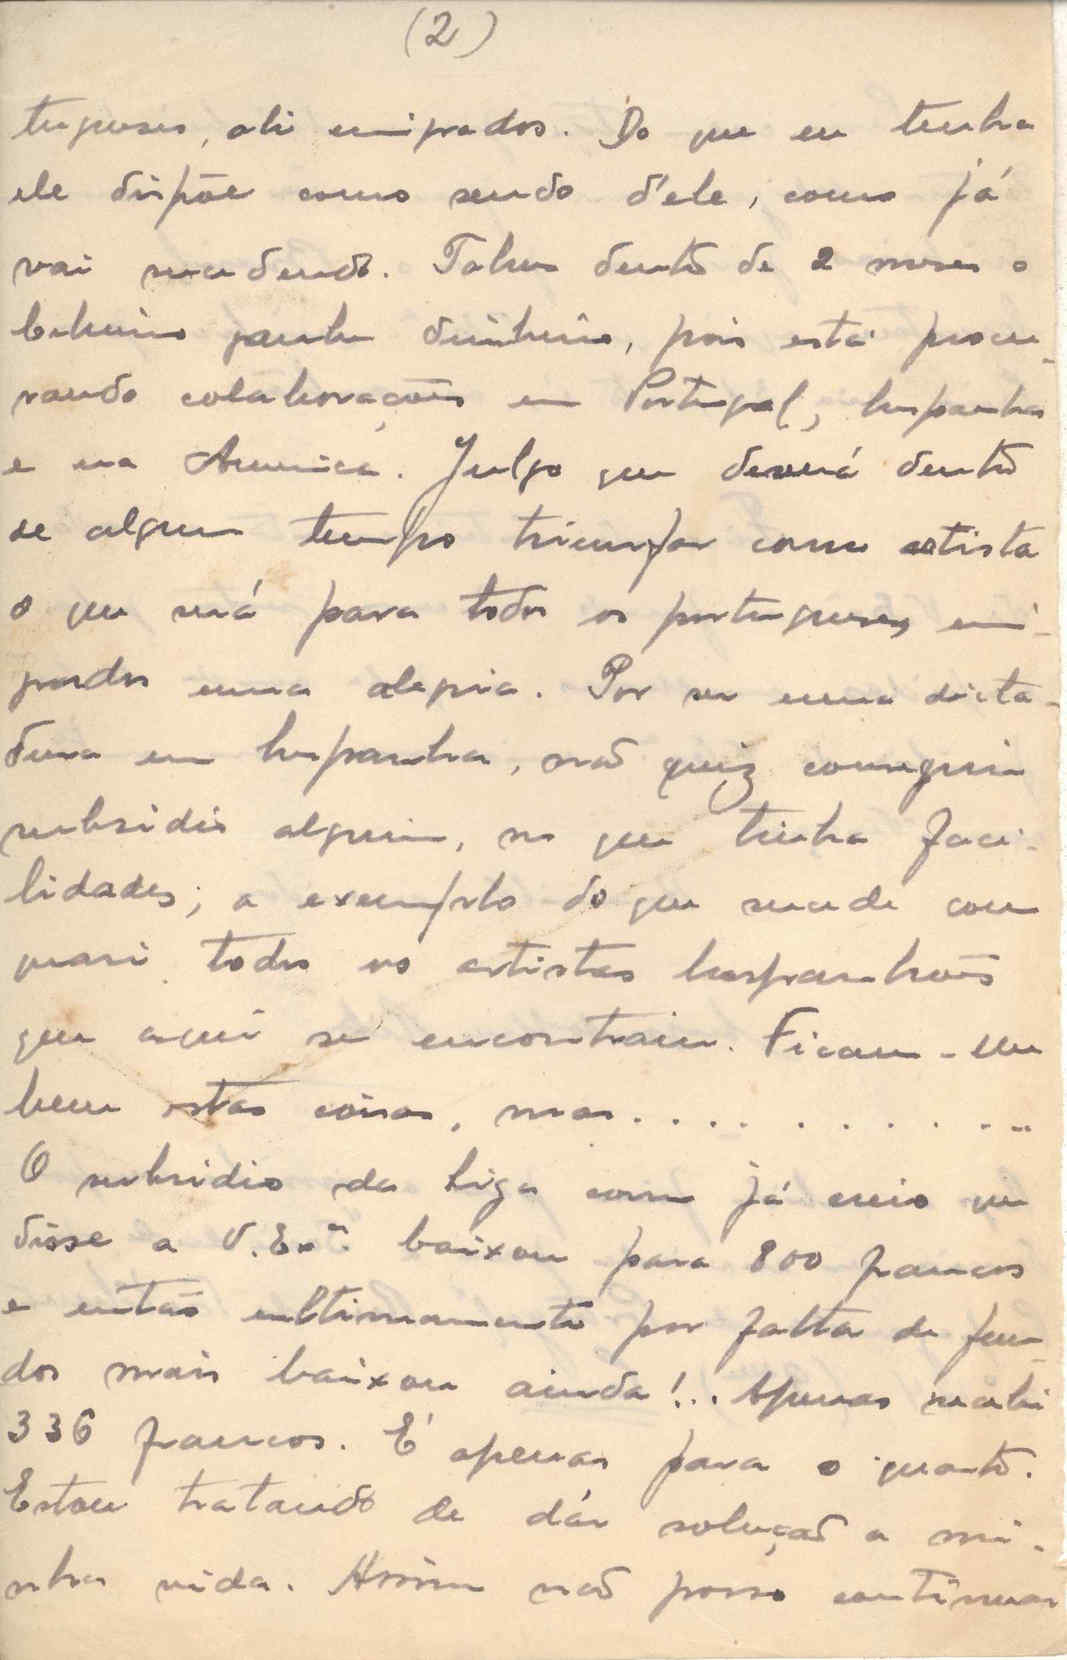 (2)
tuguses, ali emigrados. Do que eu tenha
ele dispõe como sendo d'ele, como já
vai sucedendo. Talvez dentro de 2 meses o
ganhe dinheiro, pois está procu-
rando colaborações em Portugal, hespanha
e na America. Julgo que deverá dentro
de algum tempo triumfar como artista
o que será para todos os portugueses emi-
grados uma alegria. Por ser uma dicta-
dura em hespanha, não quiz conseguir
subsidio algum, no que tinha faci-
lidades; a exemplo do que sucede com
quasi todos os artistas hespanhoes
que aqui se encontram. Ficam-me
bem estas coisas, mas. . . . . . . . . . .
O subsidio da Liga como já creio que
disse a V. Exª. baixou para 800 francos
e então ultimamente por falta de fun-
dos mais baixou ainda!.. Apenas recebi
336 francos. É apenas para o quarto.
Estou tratando de dár solução a mi-
nha vida. Assim não posso continuar